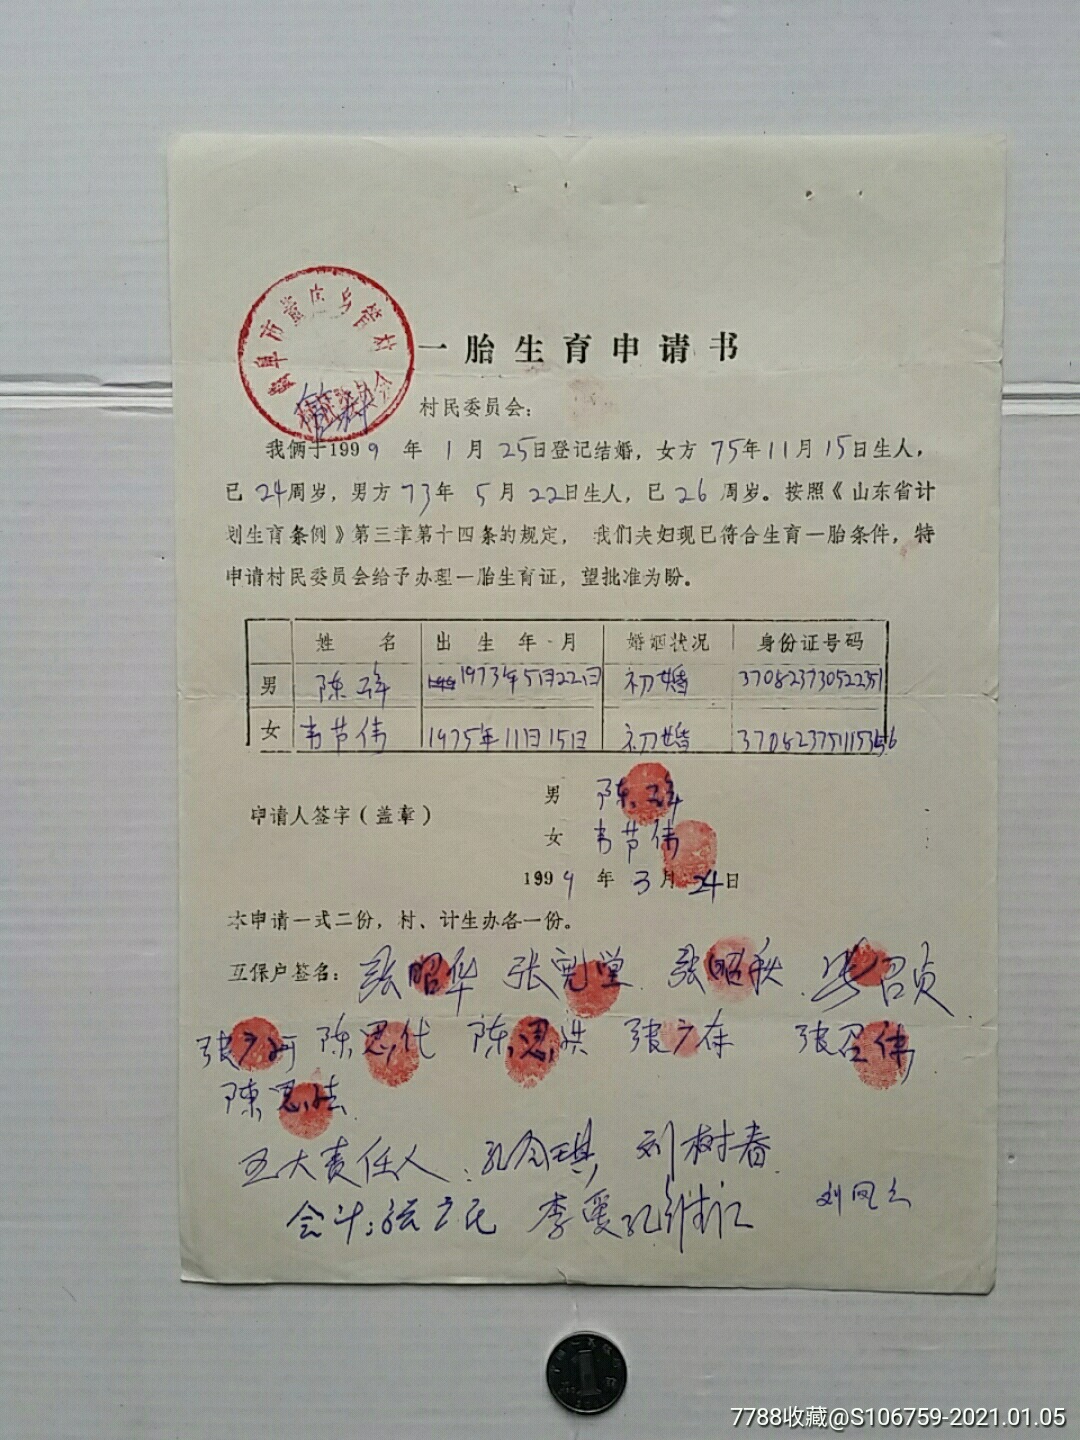 曲阜市董庄乡管村
村民委员会
一胎生育申请书
管村 村民委员会：
我俩于1999年1月25日登记结婚，女方75年11月15日生人，
已24周岁，男方73年5月22日生人，已26周岁。按照《山东省计
划生育条例》第三章第十四条的规定，我们夫妇现已符合生育一胎条件，特
申请村民委员会给予办理一胎生育证，望批准为盼。
姓 名 出 生 年 月 婚姻状况 身份证号码
男 陈 1973年5月22日 初婚 370823730522351
女 韦节伟 1975年11月15日 初婚
申请人签字（盖章） 男 陈
女 韦节伟
1999年3月24日
本申请一式二份，村、计生办各一份。
互保户签名： 张昭华 张宪堂 张昭秋 张召贞
张广 陈思代 陈思洪 张广存 张召伟
陈思
五大责任人：孔令琪 刘树春
会计：张广民 李爱 孔维 刘凤
7788收藏@S106759-2021.01.05